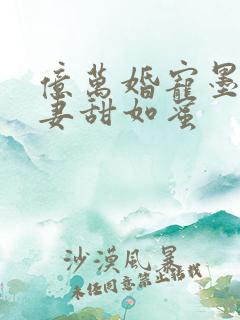 億萬婚寵墨
妻甜如蜜
沙漠風暴
未经同意禁止转载